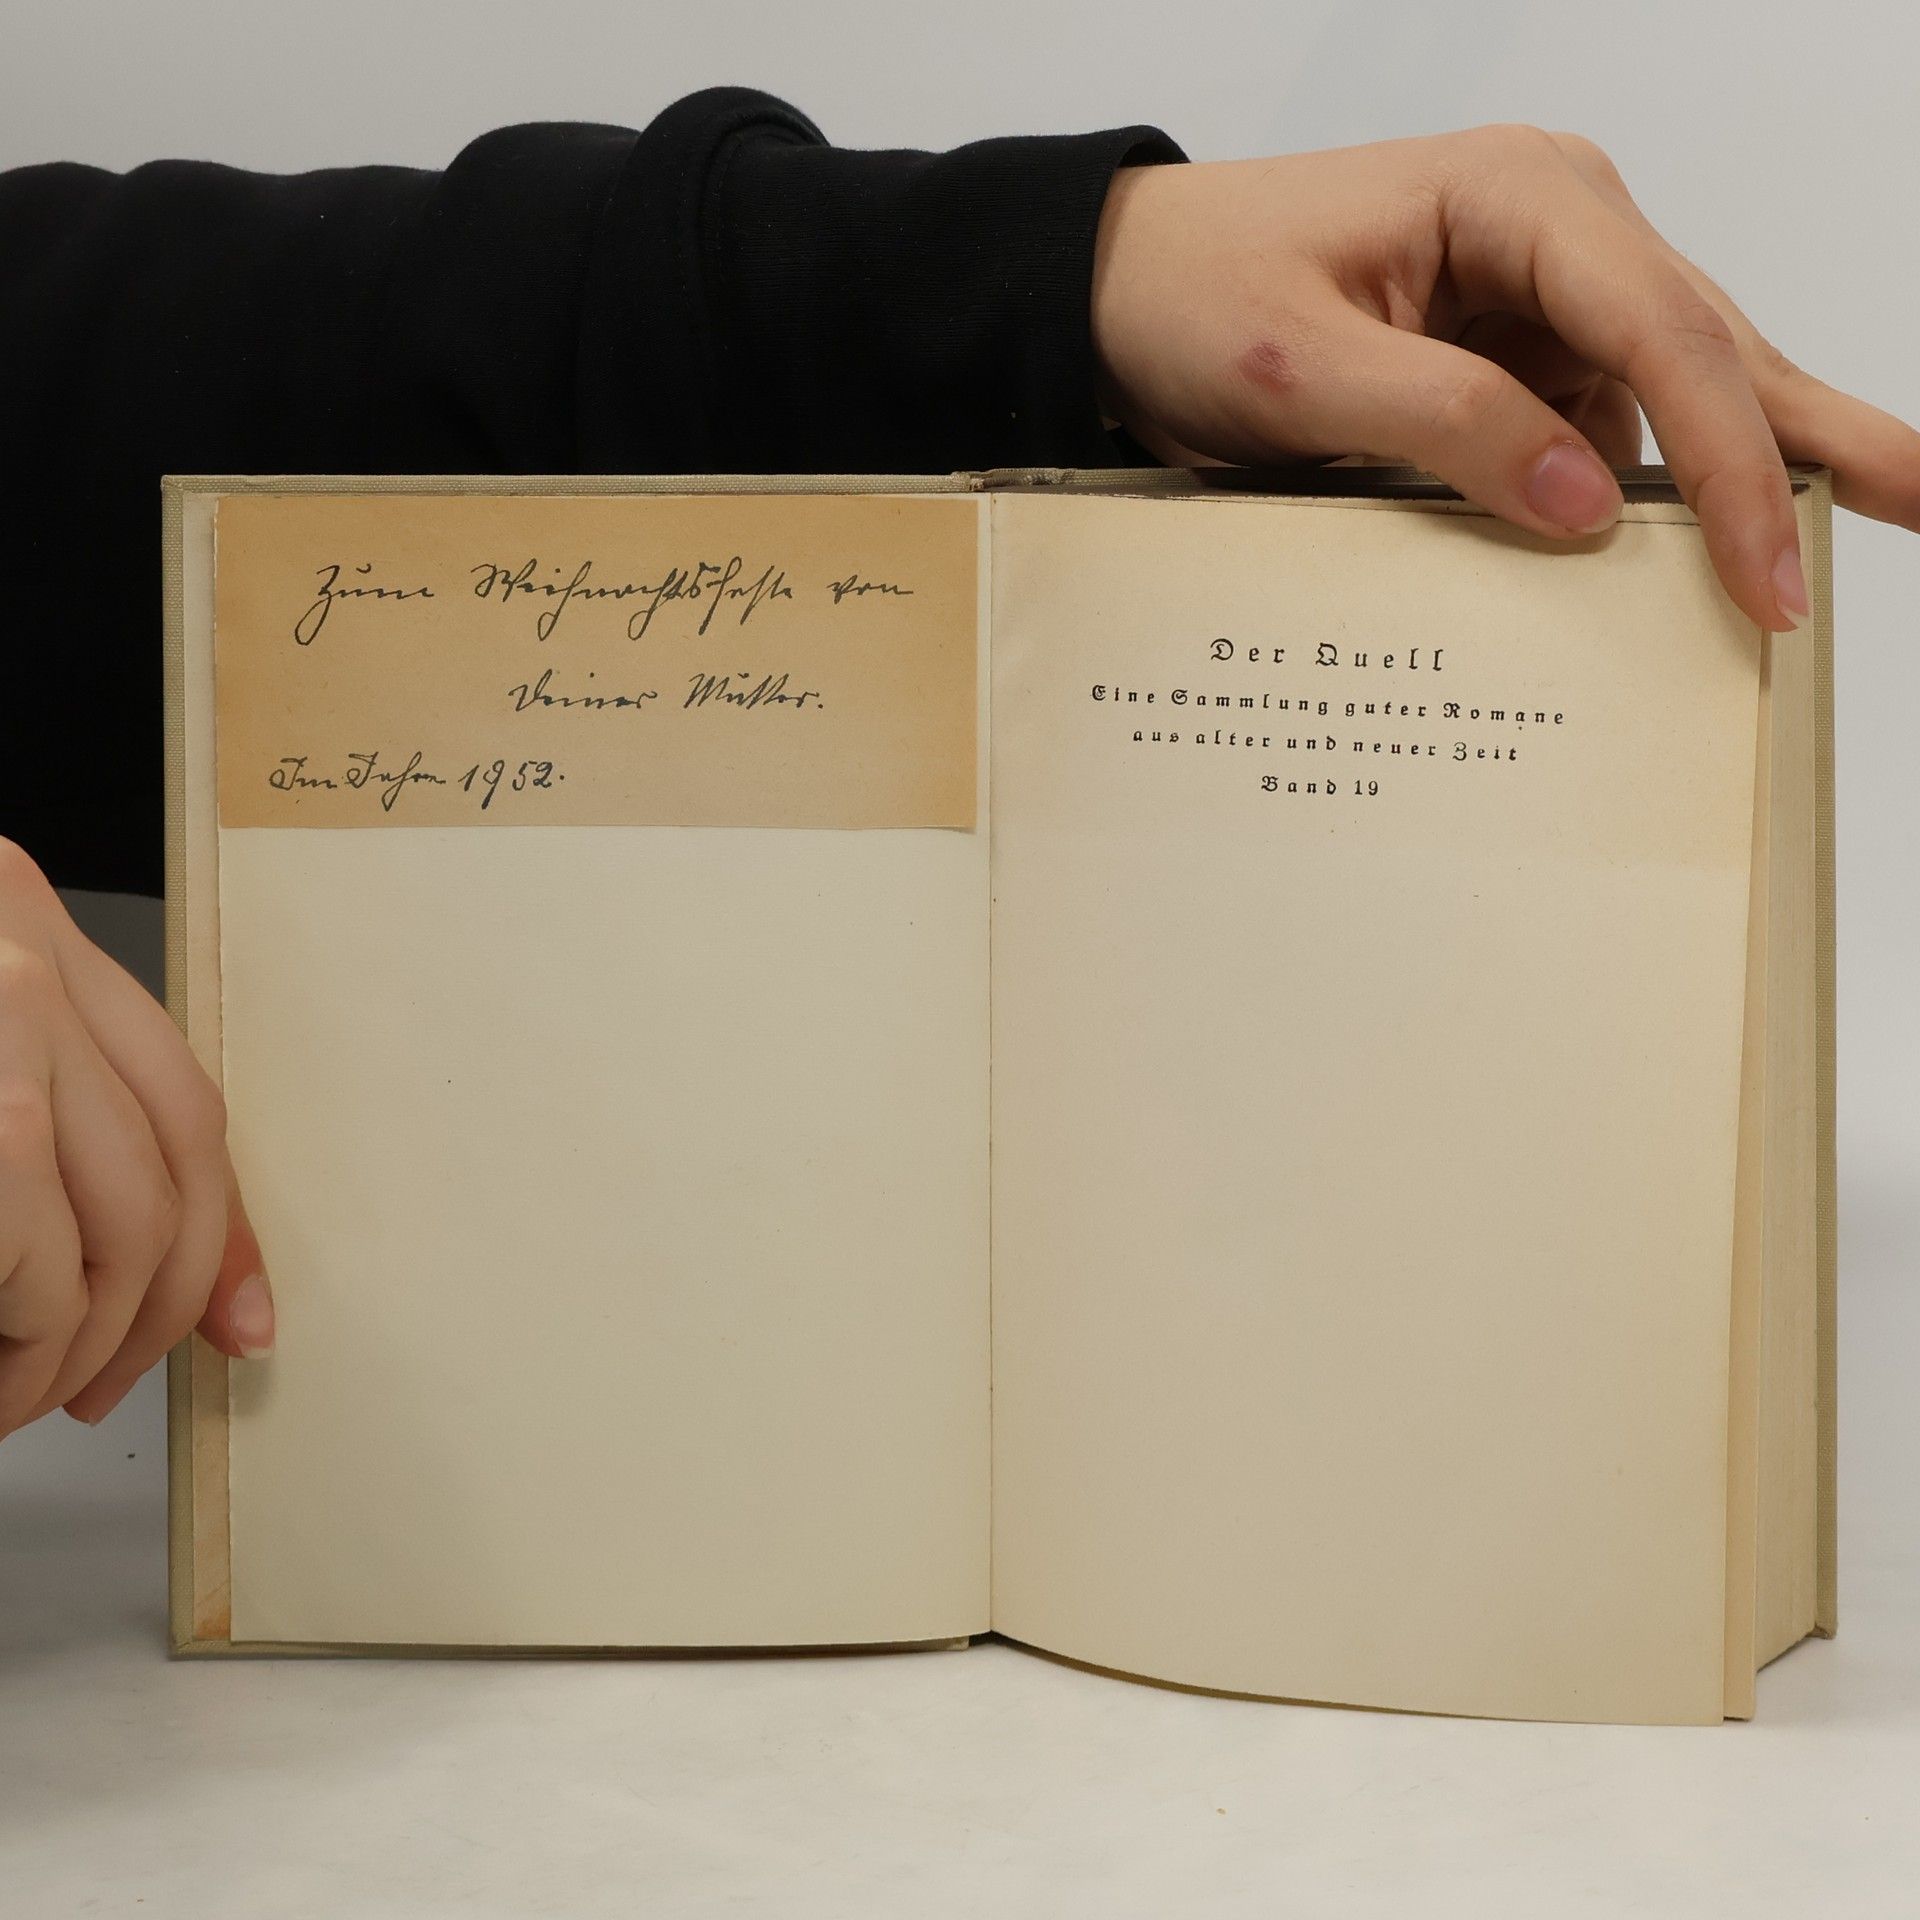 Zum Weihnachtsfeste von
Deiner Mutter.
Im Jahre 1952.
Der Quell
Eine Sammlung guter Romane
aus alter und neuer Zeit
Band 19